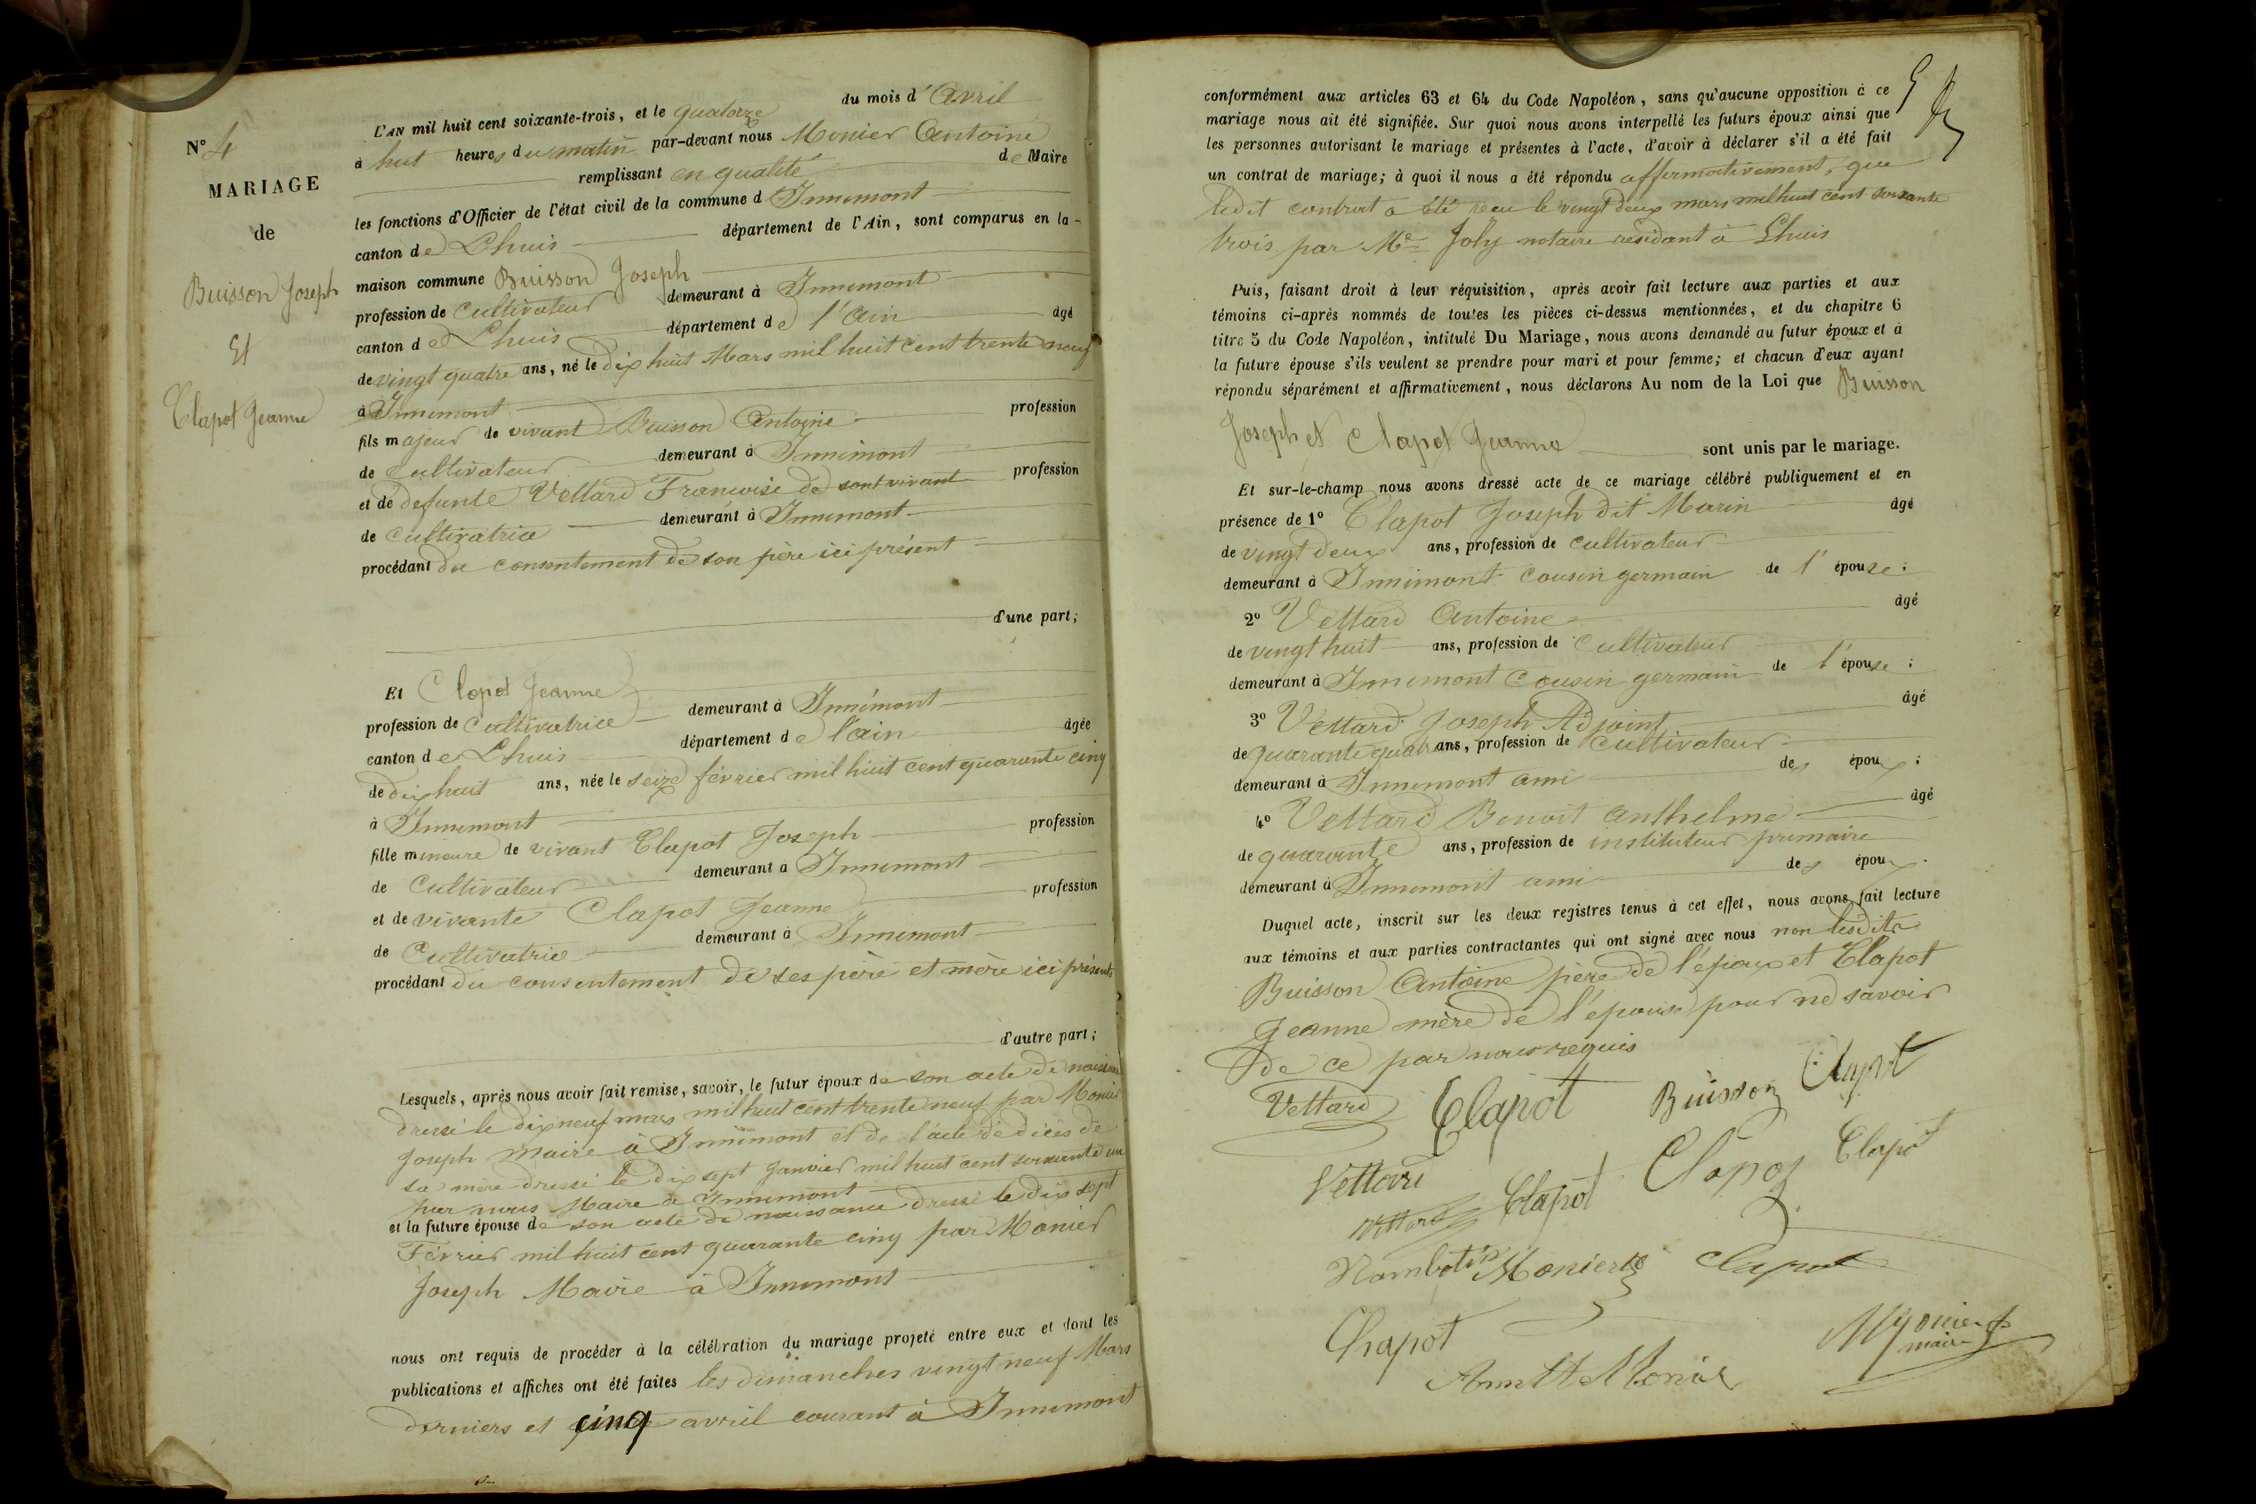 N° 4
MARIAGE
de
Buisson Joseph
Et
Clapot Jeanne
L'AN mil huit cent soixante-trois, et le quatorze du mois d'Avril
à huit heures du matin par-devant nous Monier Antoine
remplissant en qualité de Maire
les fonctions d'Officier de l'état civil de la commune d Innimont
canton de Lhuis département de l'Ain, sont comparus en la-
maison commune Buisson Joseph
profession de Cultivateur demeurant à Innimont
canton de Lhuis département de l'Ain âgé
de vingt quatre ans, né le dix huit Mars mil huit cent trente neuf
à Innimont
fils majeur de vivant Buisson Antoine profession
de Cultivateur demeurant à Innimont
et de defunte Vettard Francoise de sont vivant profession
de Cultivatrice demeurant à Innimont
procédant du consentement de son père ici présent
d'une part;
Et Clapot Jeanne
profession de Cultivatrice demeurant à Innimont
canton de Lhuis département de l'ain âgée
de dix huit ans, née le seize février mil huit cent quarante cinq
à Innimont
fille mineure de vivant Clapot Joseph profession
de Cultivateur demeurant à Innimont
et de vivante Clapot Jeanne profession
de Cultivatrice demeurant à Innimont
procédant du consentement de ses père et mère ici présents
d'autre part;
Lesquels, après nous avoir fait remise, savoir, le futur époux de son acte de naissance
dressé le dix neuf mars mil huit cent trente neuf par Monier
Joseph Maire à Innimont et de l'acte de décès de
sa mère dressé le dix sept Janvier mil huit cent soixante un
par nous Maire à Innimont
et la future épouse de son acte de naissance dressé le dix sept
Février mil huit cent quarante cinq par Monier
Joseph Maire à Innimont
nous ont requis de procéder à la célébration du mariage projeté entre eux et dont les
publications et affiches ont été faites les dimanches vingt neuf Mars
derniers et cinq avril courant à Innimont
conformément aux articles 63 et 64 du Code Napoléon, sans qu'aucune opposition à ce
mariage nous ait été signifiée. Sur quoi nous avons interpellé les futurs époux ainsi que
les personnes autorisant le mariage et présentes à l'acte, d'avoir à déclarer s'il a été fait
un contrat de mariage; à quoi il nous a été répondu affirmativement, que
ledit contrat a été recu le vingt deux mars mil huit cent soixante
trois par Me Joly notaire residant à Lhuis
Puis, faisant droit à leur réquisition, après avoir fait lecture aux parties et aux
témoins ci-après nommés de toutes les pièces ci-dessus mentionnées, et du chapitre 6
titre 5 du Code Napoléon, intitulé Du Mariage, nous avons demandé au futur époux et à
la future épouse s'ils veulent se prendre pour mari et pour femme; et chacun d'eux ayant
répondu séparément et affirmativement, nous déclarons Au nom de la Loi que Buisson
Joseph et Clapot Jeanne sont unis par le mariage.
Et sur-le-champ nous avons dressé acte de ce mariage célébré publiquement et en
présence de 1° Clapot Joseph dit Marin âgé
de vingt deux ans, profession de Cultivateur
demeurant à Innimont cousin germain de l'épouse;
2° Vettard Antoine âgé
de vingt huit ans, profession de Cultivateur
demeurant à Innimont Cousin germain de l'épouse;
3° Vettard Joseph Adjoint âgé
de quarante quatre ans, profession de Cultivateur
demeurant à Innimont ami des époux;
4° Vettard Benoit Anthelme âgé
de quarante ans, profession de instituteur primaire
demeurant à Innimont ami des époux.
Duquel acte, inscrit sur les deux registres tenus à cet effet, nous avons fait lecture
aux témoins et aux parties contractantes qui ont signé avec nous non lesdits
Buisson Antoine père de l'époux et Clapot
Jeanne mère de l'épouse pour ne savoir
de ce par nous requis
Vettard Clapot Buisson Clapot
Vettard Clapot Clapot Clapot
Monier Clapot
Chapot Monier
maire